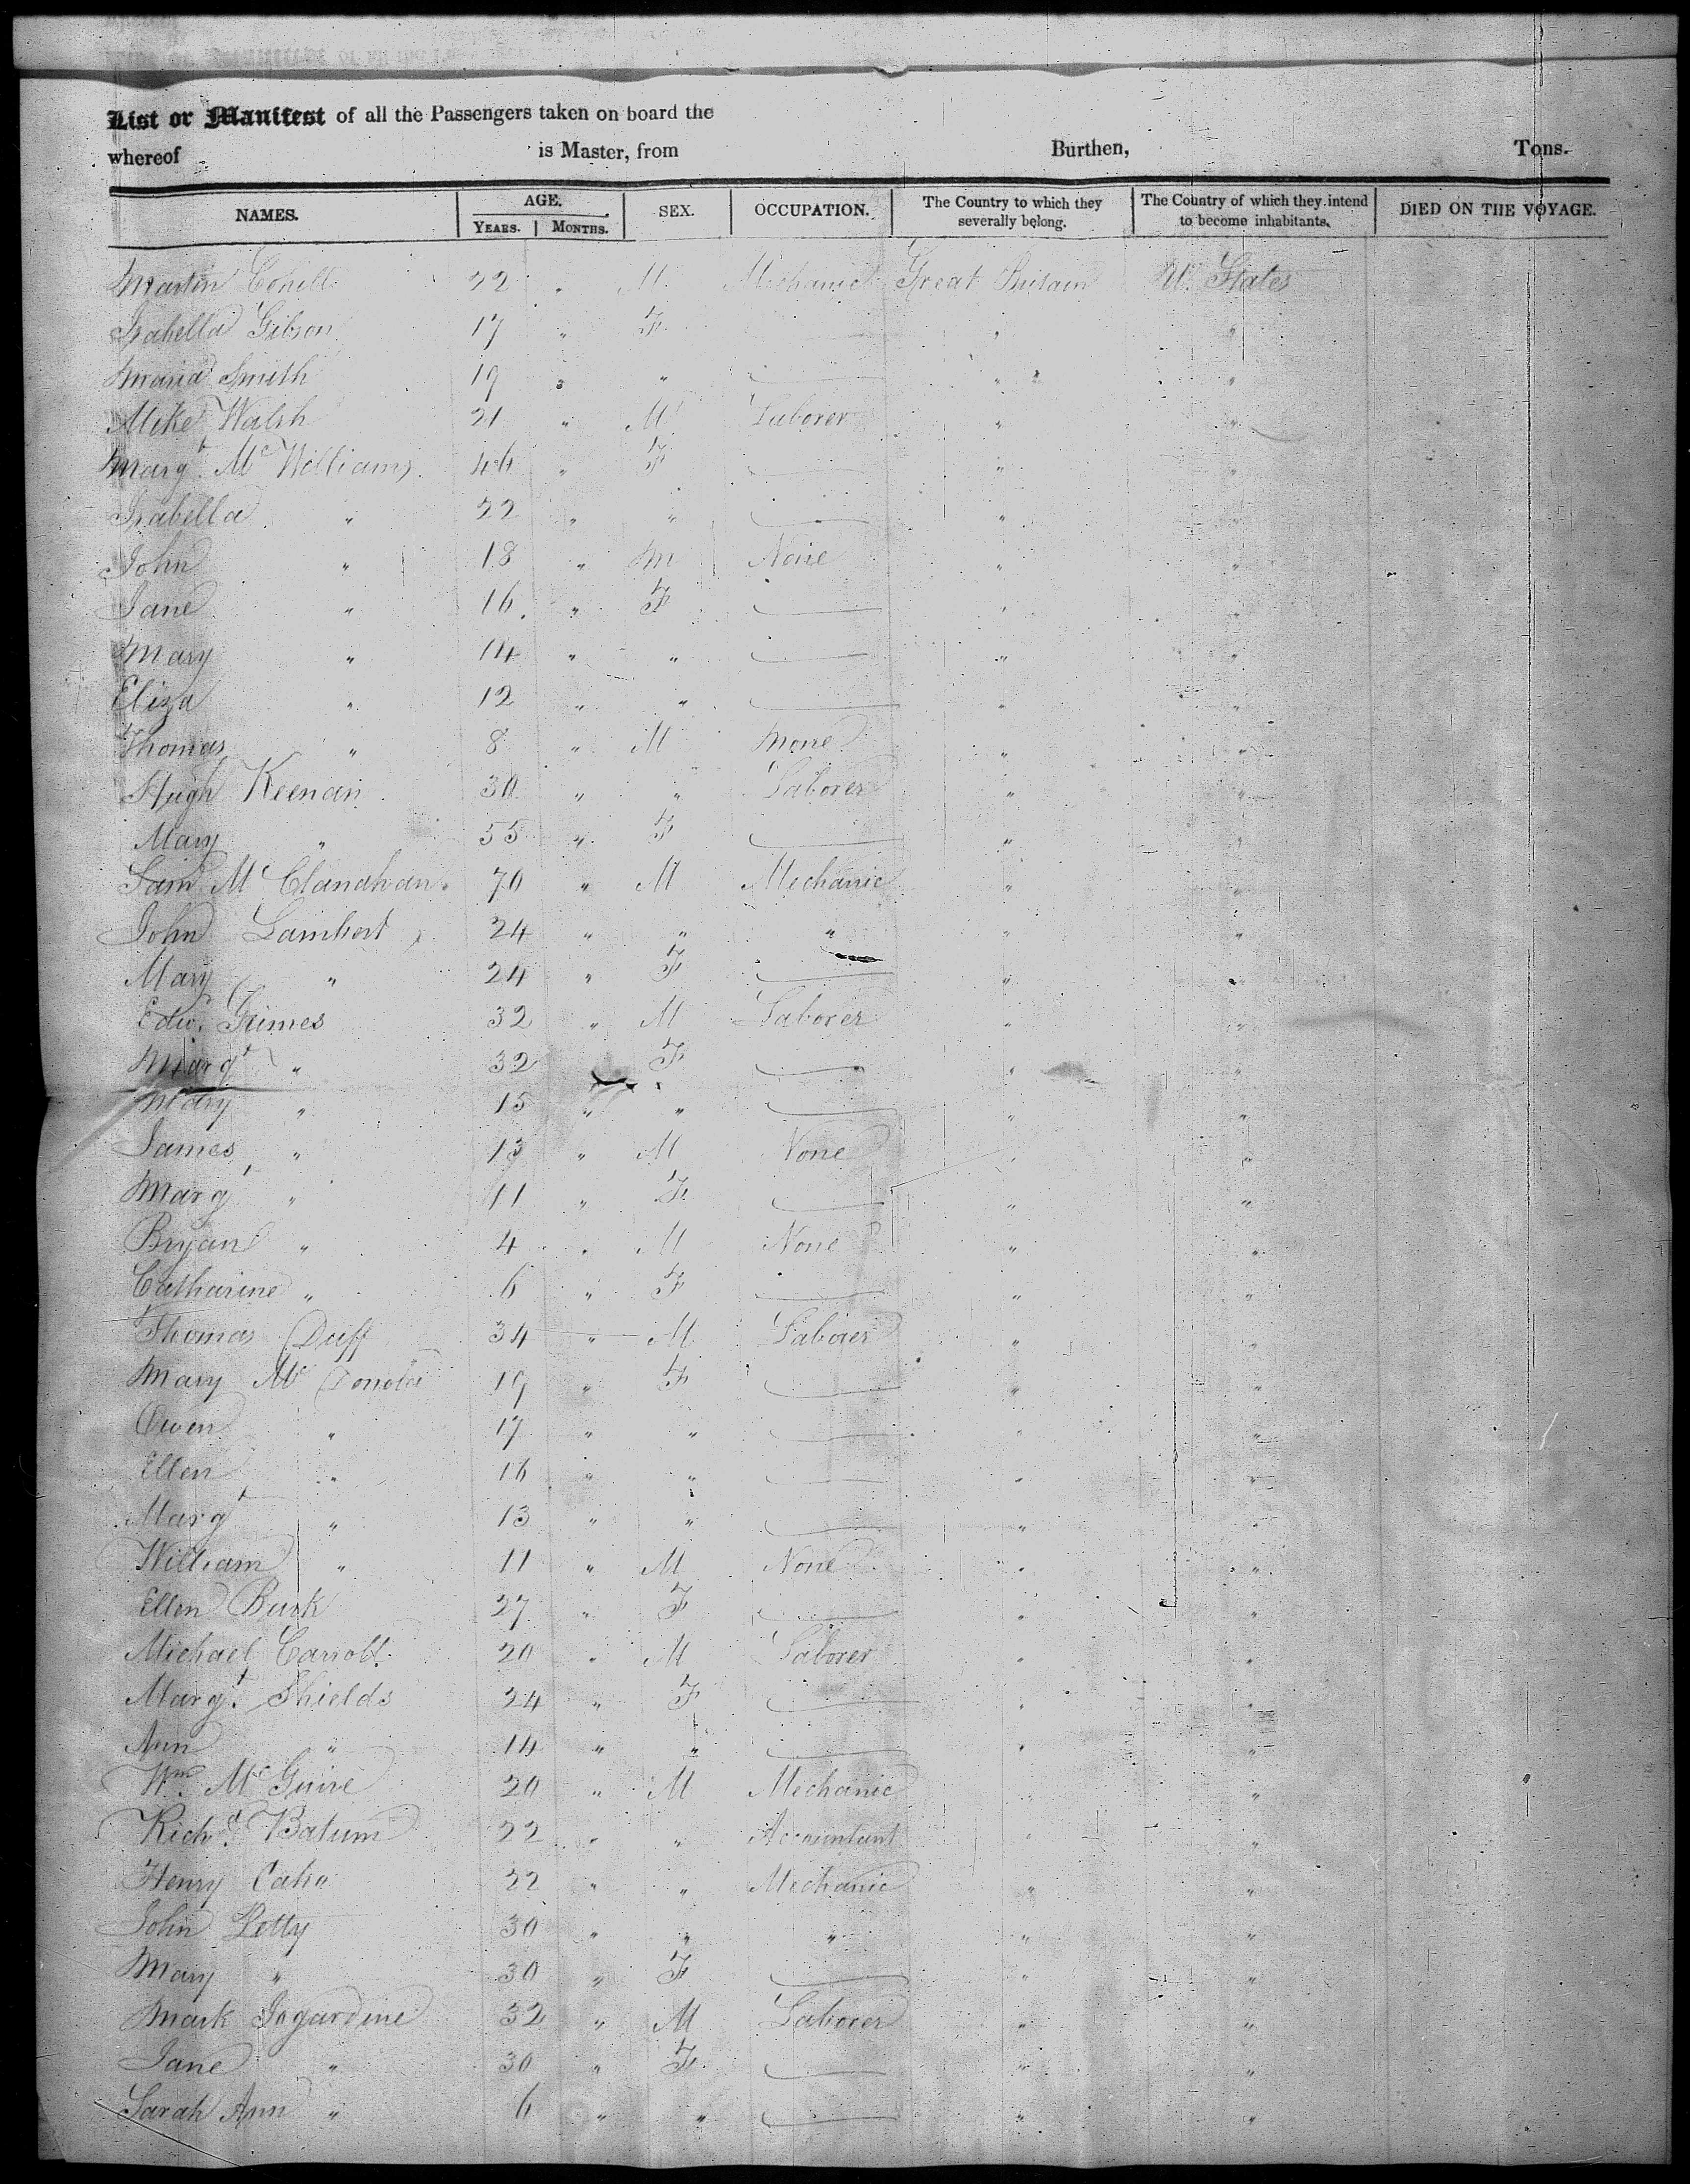 List or Manifest of all the Passengers taken on board the
whereof is Master, from Burthen, Tons.
NAMES. AGE. YEARS. MONTHS. SEX. OCCUPATION. The Country to which they severally belong. The Country of which they intend to become inhabitants. DIED ON THE VOYAGE.
Martin 22 " M Mechanic Great Britain U. States
Isabella Gibson 17 " F — " "
Maria Smith 19 " " — " "
Mike Walsh 21 " M Laborer " "
Margt. Mc Williams 46 " F — " "
Isabella " 22 " " — " "
John " 18 " M None " "
Jane " 16 " F — " "
Mary " 14 " " — " "
Eliza " 12 " " — " "
Thomas " 8 " M None " "
Hugh Keenan 30 " " Laborer " "
Mary " 55 " F — " "
Saml Mc Clanahan 70 " M Mechanic " "
John Lambert 24 " " " " "
Mary " 24 " F — " "
Edw. Grimes 32 " M Laborer " "
Margt " 32 " F — " "
Mary " 15 " " — " "
James " 13 " M None " "
Margt " 11 " F — " "
Bryan " 4 " M None " "
Catharine " 6 " F — " "
Thomas Duff 34 " M Laborer " "
Mary Mc 19 " F — " "
Owen " 17 " " — " "
Ellen " 16 " " — " "
Margt " 13 " " — " "
William " 11 " M None " "
Ellen Burk 27 " F — " "
Michael Carroll 20 " M Laborer " "
Margt. Shields 24 " F — " "
Ann " 14 " " — " "
Wm. McGuire 20 " M Mechanic " "
Richd. Batum 22 " " Accountant " "
Henry 22 " " Mechanic " "
John Petty 30 " " " " "
Mary " 30 " F — " "
Mark Jogardine 32 " M Laborer " "
Jane " 30 " F — " "
Sarah Ann " 6 " " — " "